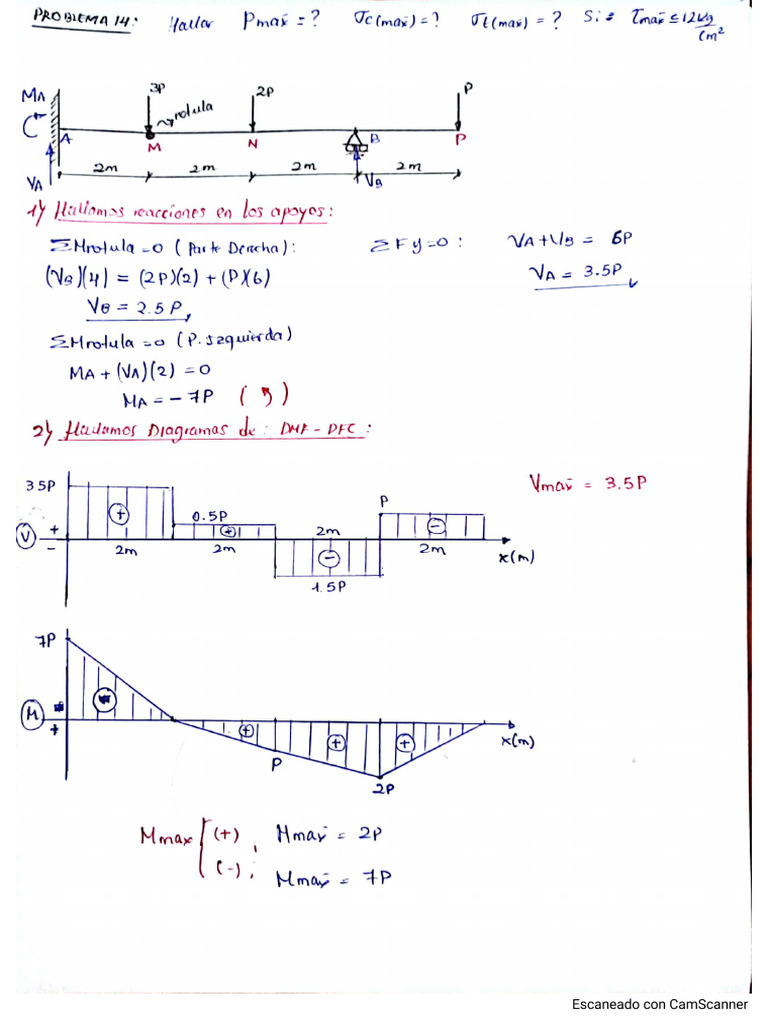 PROBLEMA 14: Hallar Pmax = ? σc(max) = ? σt(max) = ? Si: τmax ≤ 12 kg/cm²
3P 2P P
MA rotula
A M N B P
2m 2m 2m 2m
VA VB
1) Hallamos reacciones en los apoyos:
ΣMrotula = 0 (Parte Derecha): ΣFy = 0: VA + VB = 6P
(VB)(4) = (2P)(2) + (P)(6) VA = 3.5P
VB = 2.5P
ΣMrotula = 0 (P. Izquierda)
MA + (VA)(2) = 0
MA = - 7P
2) Hallamos Diagramas de: DMF - DFC:
3.5P (+) Vmax = 3.5P
0.5P (+) 2m P (-)
V + - 2m 2m 2m x(m)
(-) 1.5P
7P
M + (+) (+) (+) x(m)
P
2P
Mmax (+), Mmax = 2P
(-); Mmax = 7P
Escaneado con CamScanner